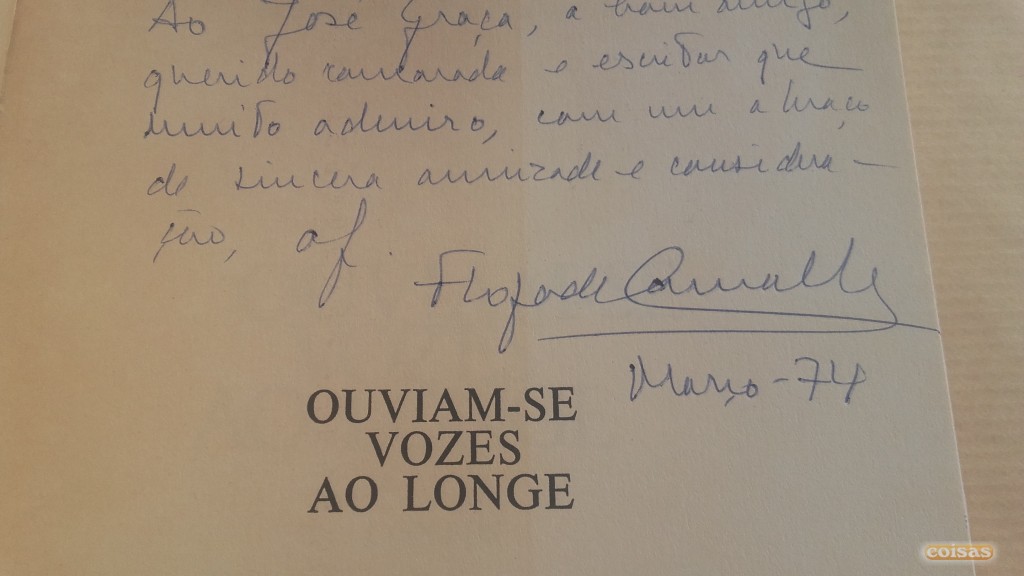 Ao José Graça, a bom amigo,
querido camarada e escritor que
muito admiro, com um abraço
de sincera amizade e considera-
ção, af.
Carvalho
Março-74
OUVIAM-SE
VOZES
AO LONGE
coisas